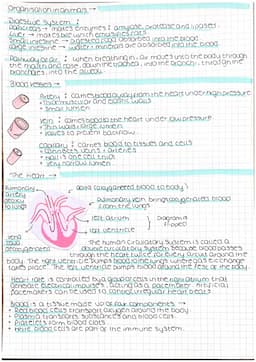 Organisation in animals →
Digestive system :
Pancreas → makes enzymes ( amylase, protease and lipase).
Liver → makes bile which emulsifies fats.
Small intestine → digested food absorbed into the blood.
Large intestine → water + minerals are absorbed into the blood.
Pathway of air : when breathing in, air moves into the body through
the mouth and nose, down the trachea, into the bronchi, through the
bronchioles, into the alveoli.
Blood vessels →
Artery : carries blood away from the heart under high pressure
• thick muscular and elastic walls
• Small lumen
Vein : carries blood to the heart under low pressure
• thin walls + large lumen
• valves to prevent backflow
Capillary : carries blood to tissues and cells
• connects veins + arteries
• wall is one cell thick
• very narrow lumen
The heart →
Pulmonary
artery
to lungs
aorta (oxygenated blood to body)
Pulmonary vein brings oxygenated blood
from the lungs
left atrium
left ventricle
Diagram is
flipped
vena
cava
deoxygenated
The human circulatory system is called a
double circulatory system because blood passes
through the heart twice for every circuit around the
body. The right ventricle pumps blood to the lungs where gas exchange
takes place. The left ventricle pumps blood around the rest of the body.
Heart rate is controlled by a group of cells in the right atrium that
generate electrical impulses, acting as a pacemaker. Artificial
pacemakers can be used to control irregular heart beats.
Blood is a tissue made up of four components →
• Red blood cells transport oxygen around the body
• Plasma transports substances and blood cells.
• Platelets form blood clots.
• White blood cells are part of the immune system.